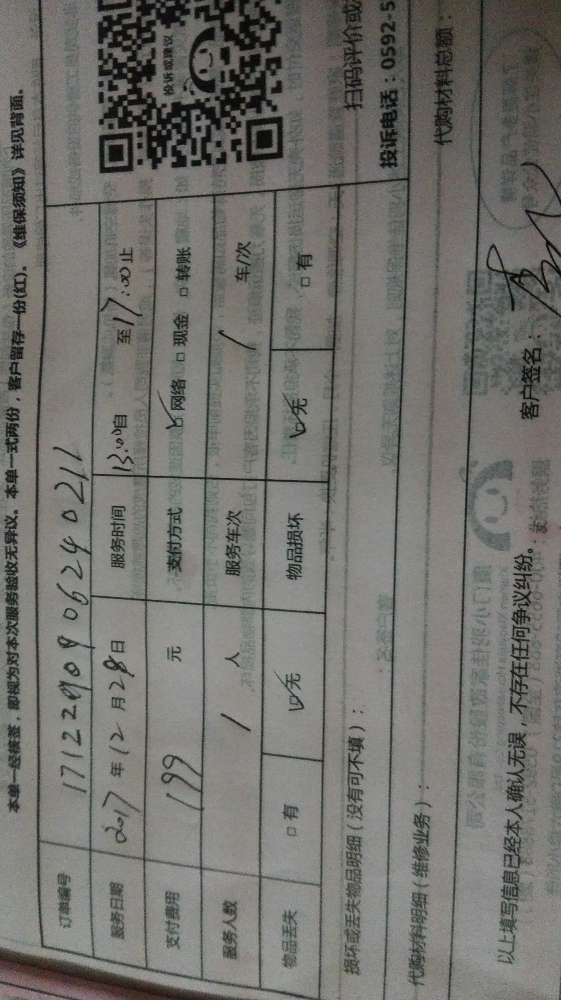 本单一经核签，即视为对本次服务验收无异议。本单一式两份，客户留存一份(红)。《维保须知》详见背面。
订单编号 171229090624 0211
服务日期 2017年12月28日 服务时间 13:00自 至17:00止
支付费用 199 元 支付方式 ☑网络 □现金 □转账
服务人数 1 人 服务车次 1 车/次
物品丢失 □有 ☑无 物品损坏 ☑无 □有
损坏或丢失物品明细（没有可不填）：
投诉或建议
扫码评价或
投诉电话：0592-5
代购材料明细（维修业务）： 代购材料总额：
以上填写信息已经本人确认无误，不存在任何争议纠纷。 客户签名：